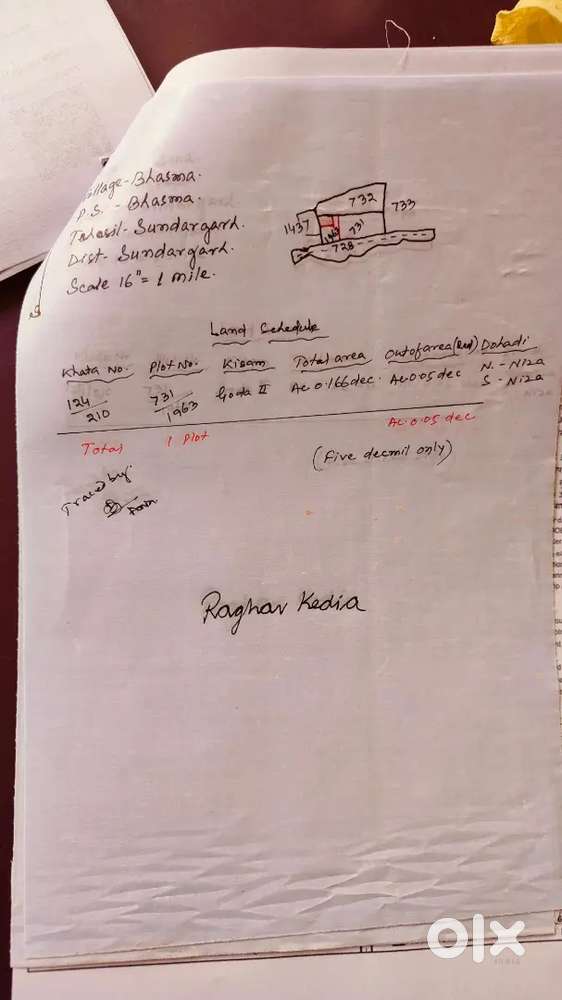 Village-Bhasma.
P.S. - Bhasma.
Tahasil-Sundargarh.
Dist-Sundargarh.
Scale 16"= 1 mile.
732
733
1437
731
728
Land Schedule
Khata No. Plot No. Kisam Total area Out of area (Red) Dohadi
124/210 731/1963 Goda II Ac 0.166 dec. Ac 0.05 dec N. - Niza
S - Niza
Total 1 Plot Ac. 0.05 dec
(Five decmil only)
Traced by.
Raghav Kedia
olx
INDIA